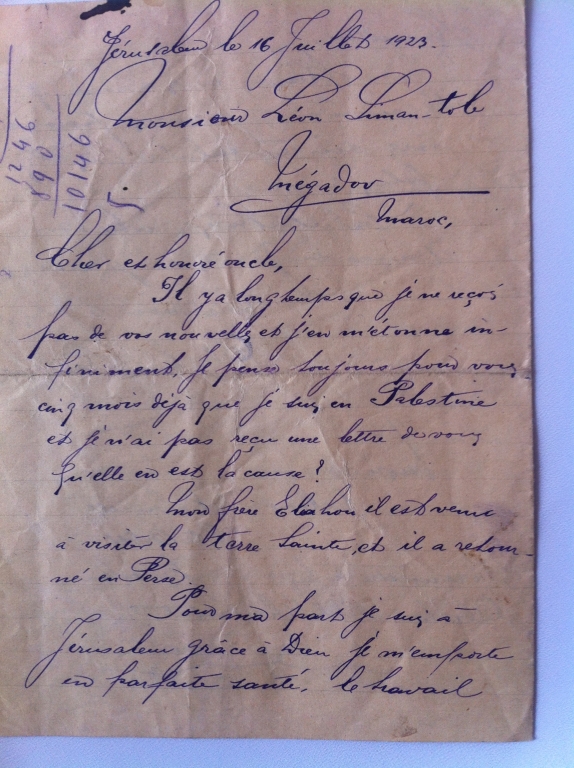 Jérusalem le 16 Juillet 1923.
Monsieur Léon Siman-tob
Mogador
Maroc,
1246
890
10146
5
Cher et honoré oncle,
Il y a longtemps que je ne reçois
pas de vos nouvelles et j'en m'étonne in-
finiment. Je pense toujours pour vous,
cinq mois déjà que je suis en Palestine
et je n'ai pas reçu une lettre de vous
qu'elle en est la cause?
Mon frère Eliahou il est venu
à visiter la terre Sainte, et il a retour-
né en Perse.
Pour ma part je suis à
Jérusalem grâce à Dieu je m'emporte
en parfaite santé, le travail